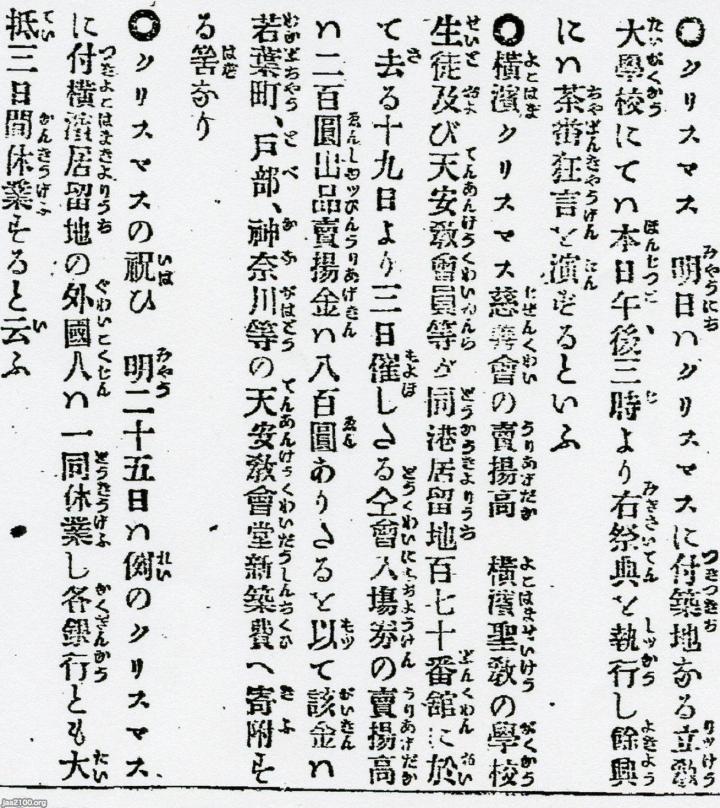 ◯クリスマス 明日ハクリスマスに付築地なる立敎
大學校にてハ本日午後三時より右祭典を執行し餘興
にハ茶番狂言を演ずるといふ
◯橫濱クリスマス慈善會の賣揚高 橫濱聖敎の學校
生徒及び天安敎會員等が同港居留地百七十番舘に於
て去る十九日より三日催したる仝會入塲券の賣揚高
ハ二百圓出品賣揚金ハ八百圓ありたるを以て該金ハ
若葉町、戸部、神奈川等の天安敎會堂新築費へ寄附す
る筈なり
◯クリスマスの祝ひ 明二十五日ハ例のクリスマス
に付橫濱居留地の外國人ハ一同休業し各銀行とも大
抵三日間休業すると云ふ
jaa2100.org